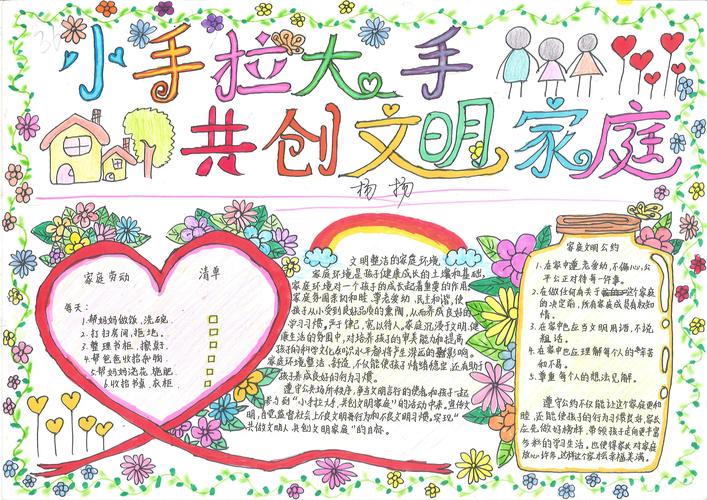 小手拉大手
共创文明家庭
杨扬
家庭劳动 清单
每天：
1.帮妈妈做饭、洗碗.
2.打扫房间，拖地。
3.整理书柜、擦桌.
4.帮爸爸收拾杂物.
5.帮妈妈浇花、施肥.
6.收拾书桌、衣柜.
文明整洁的家庭环境
家庭环境是孩子健康成长的土壤和基础,
家庭环境对一个孩子的成长起着重要的作用.
家庭务用亲切和睦、尊老爱幼、民主和谐，使
孩子从小受到良好品质的熏陶，从而养成良好的
学习习惯。严于律己，宽以待人。家庭沉浸文明、健
康生活的氛围中，对培养孩子的审美能力和提高
孩子的科学文化知识水平都将产生深远的影响.
家庭环境整洁、舒适、不仅能使孩子情绪稳定，还有助于
孩子养成良好的行为习惯。
遵守公共场所秩序，争当文明言行的使者和孩子一起
参与到“小手拉大手，共创文明家庭”的活动中来。宣传文
明，自觉监督社会上不良文明等行为和不良文明习惯。实现“
共做文明人，共创文明家庭”的目标。
家庭文明公约
1.在家中尊老爱幼，不偏心，公
平公正对待每一件事。
2.在做任何有关于这个家庭
的决定前，所有家庭成员有权知
情。
3.在家中应当文明用语，不说
粗话。
4.在家中也应理解每个人的辛苦
和不易。
5.尊重每个人的想法见解.
遵守公约不仅能让这个家庭更和
睦，还能使孩子的行为习惯良好，家长
应先做好榜样，带领孩子走向更丰富
多彩的学习生活。也使得家长对家庭
放心许多，这样这个家松幸福美满。